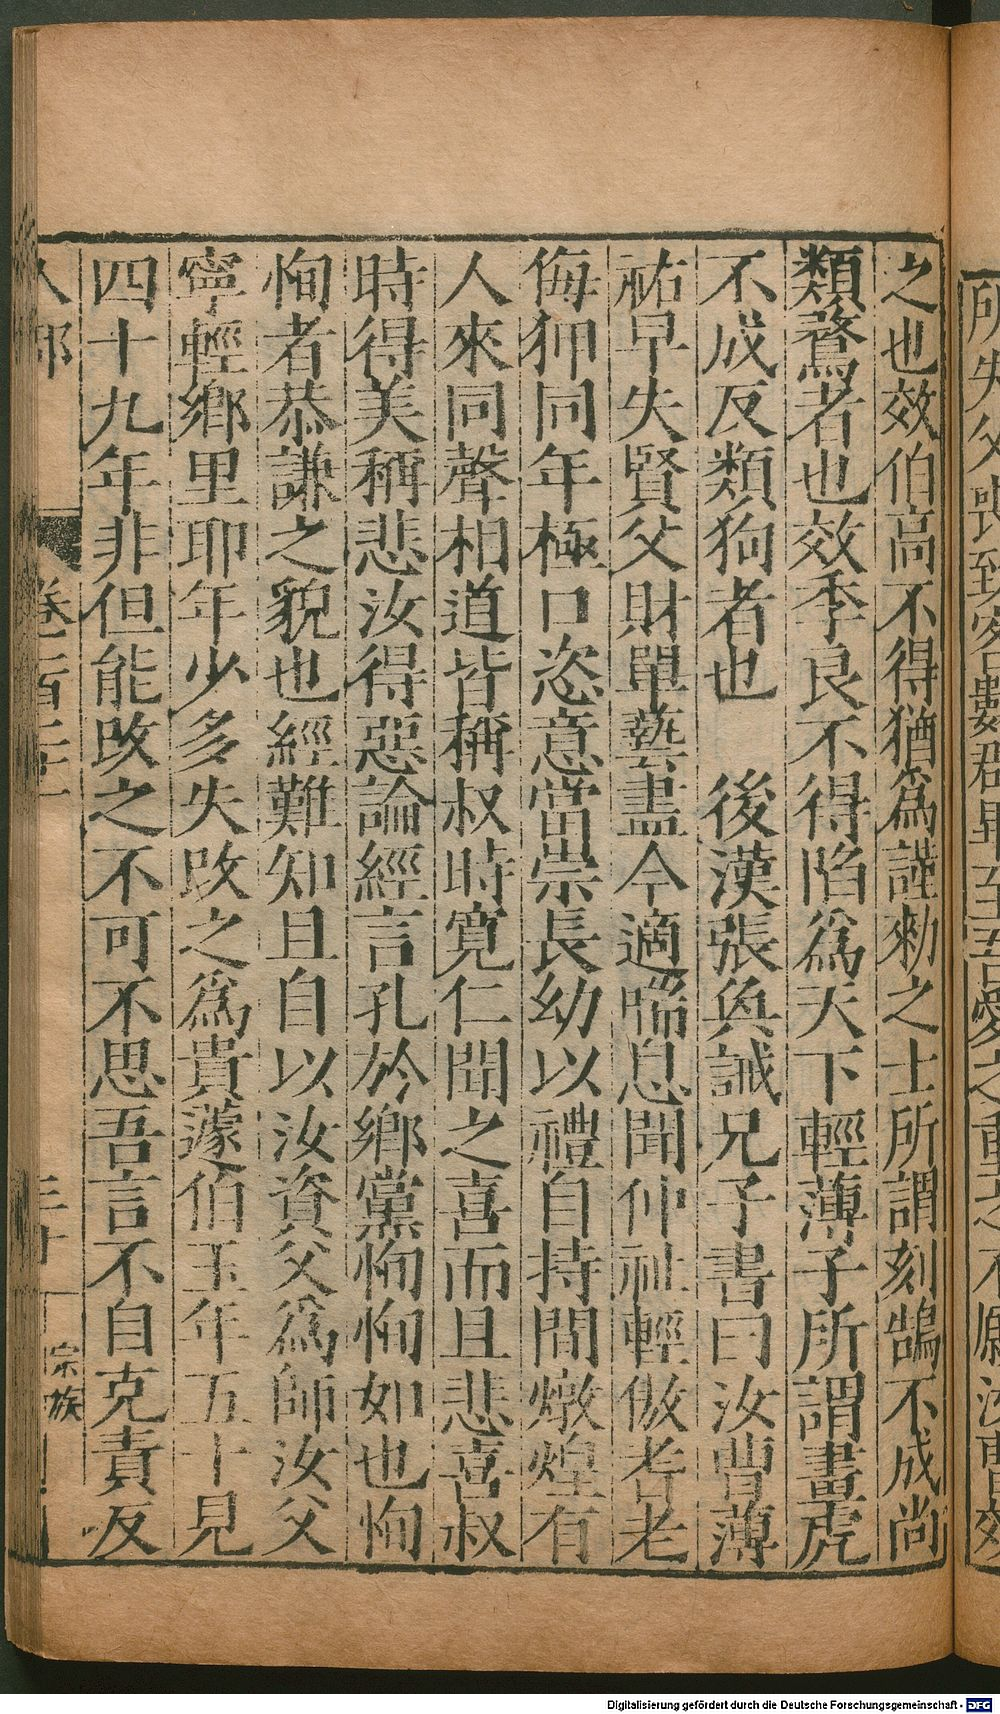 之也效伯高不得猶爲謹勑之士所謂刻鵠不成尚
類鶩者也效季良不得陷爲天下輕薄子所謂畫虎
不成反類狗者也　後漢張奐誡兄子書曰汝曹薄
祐早失賢父財單藝盡今適喘息聞仲祉輕傲耆老
侮狎同年極口恣意當崇長幼以禮自持聞燉煌有
人來同聲相道皆稱叔時寬仁聞之喜而且悲喜叔
時得美稱悲汝得惡論經言孔於鄉黨恂恂如也恂
恂者恭謙之貌也經難知且自以汝資父爲師汝父
寧輕鄉里耶年少多失改之爲貴蘧伯玉年五十見
四十九年非但能改之不可不思吾言不自克責反
人部　卷二百　三十　宗族
Digitalisierung gefördert durch die Deutsche Forschungsgemeinschaft - DFG